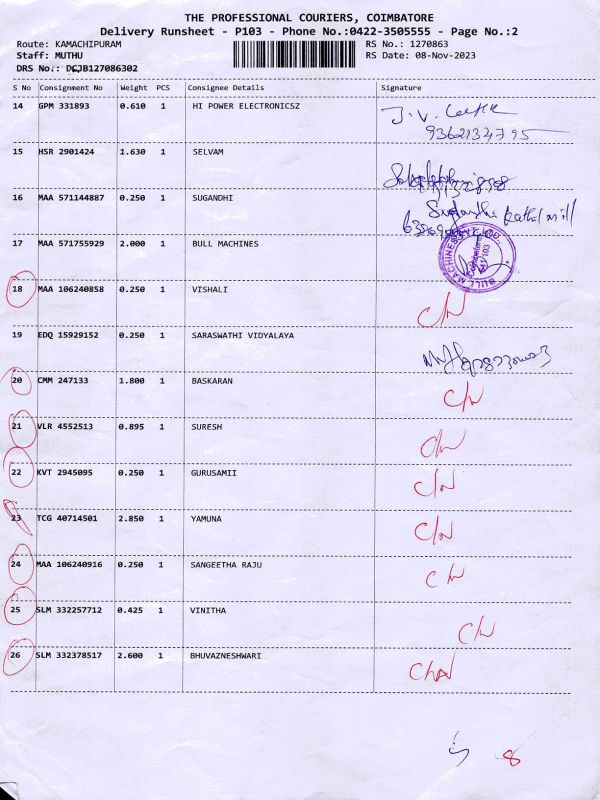 THE PROFESSIONAL COURIERS, COIMBATORE
Delivery Runsheet - P103 - Phone No.:0422-3505555 - Page No.:2
Route: KAMACHIPURAM
RS No.: 1270863
Staff: MUTHU
RS Date: 08-Nov-2023
DRS No.: DCJB127086302
S No Consignment No Weight PCS Consignee Details Signature
14 GPM 331893 0.610 1 HI POWER ELECTRONICSZ
15 HSR 2901424 1.630 1 SELVAM
16 MAA 571144887 0.250 1 SUGANDHI
17 MAA 571755929 2.000 1 BULL MACHINES
18 MAA 106240858 0.250 1 VISHALI C/N
19 EDQ 15929152 0.250 1 SARASWATHI VIDYALAYA
20 CMM 247133 1.800 1 BASKARAN C/N
21 VLR 4552513 0.895 1 SURESH C/N
22 KVT 2945095 0.250 1 GURUSAMII C/N
23 TCG 40714501 2.850 1 YAMUNA C/N
24 MAA 106240916 0.250 1 SANGEETHA RAJU C/N
25 SLM 332257712 0.425 1 VINITHA C/N
26 SLM 332378517 2.600 1 BHUVAZNESHWARI
5 8